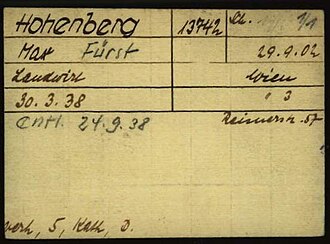 Hohenberg 13742 Sch.
Max Fürst 29.9.02
Landwirt Wien
30.3.38 " 3
Entl. 24.9.38 Reisnerstr. 57
verh, 5, Kath, D.